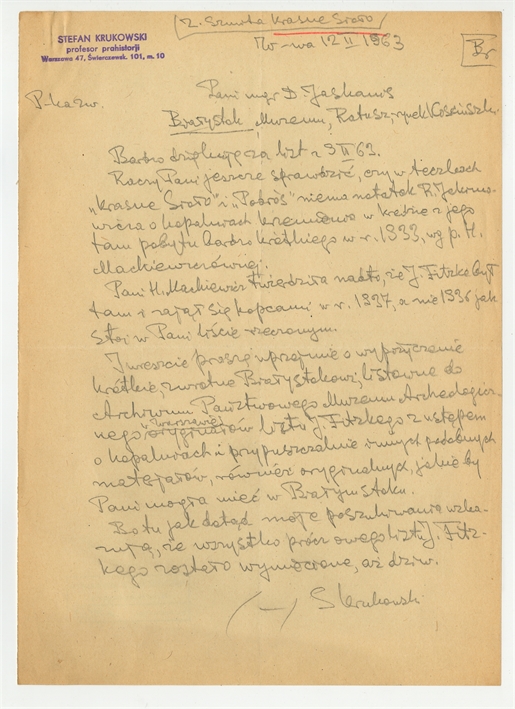 z. Szuwka Krasne Sioło
STEFAN KRUKOWSKI
profesor prahistorji
Warszawa 47, Świerczewsk. 101, m. 10
W-wa 12 II 1963
Br
P-kazw.
Pani mgr D. Jaskanis
Białystok Muzeum, Ratusz, rynek Kościuszki.
Bardzo dziękuję za list z 9 II 63.
Raczy Pani jeszcze sprawdzić, czy w teczkach
„Krasne Sioło" i „Pobrós" niema notatek R. Jakimo-
wicza o kopalniach krzemienia w Krasne z jego
tam pobytu bardzo krótkiego w r. 1933, wg p. H.
Mackiewiczównej.
Pani H. Mackiewicz twierdziła nadto, że J. Fitzke był
tam i zajął się kopcami w r. 1937, a nie 1936 jak
stoi w Pani liście rzeczonym.
I wreszcie proszę uprzejmie o wypożyczenie
krótkie, zwrotne Białystokowi, listowne do
Archiwum Państwowego Muzeum Archeologicz-
w Warszawie
nego oryginałów listu J. Fitzkego z ustępem
o kopalniach i przypuszczalnie innych podobnych
materjałów, również oryginalnych, jakie by
Pani mogła mieć w Białymstoku.
Bo tu jak dotąd moje poszukiwania wska-
zują, że wszystko prócz owego listu J. Fitz-
kego zostało wymiecione, aż dziw.
(—) S Krukowski